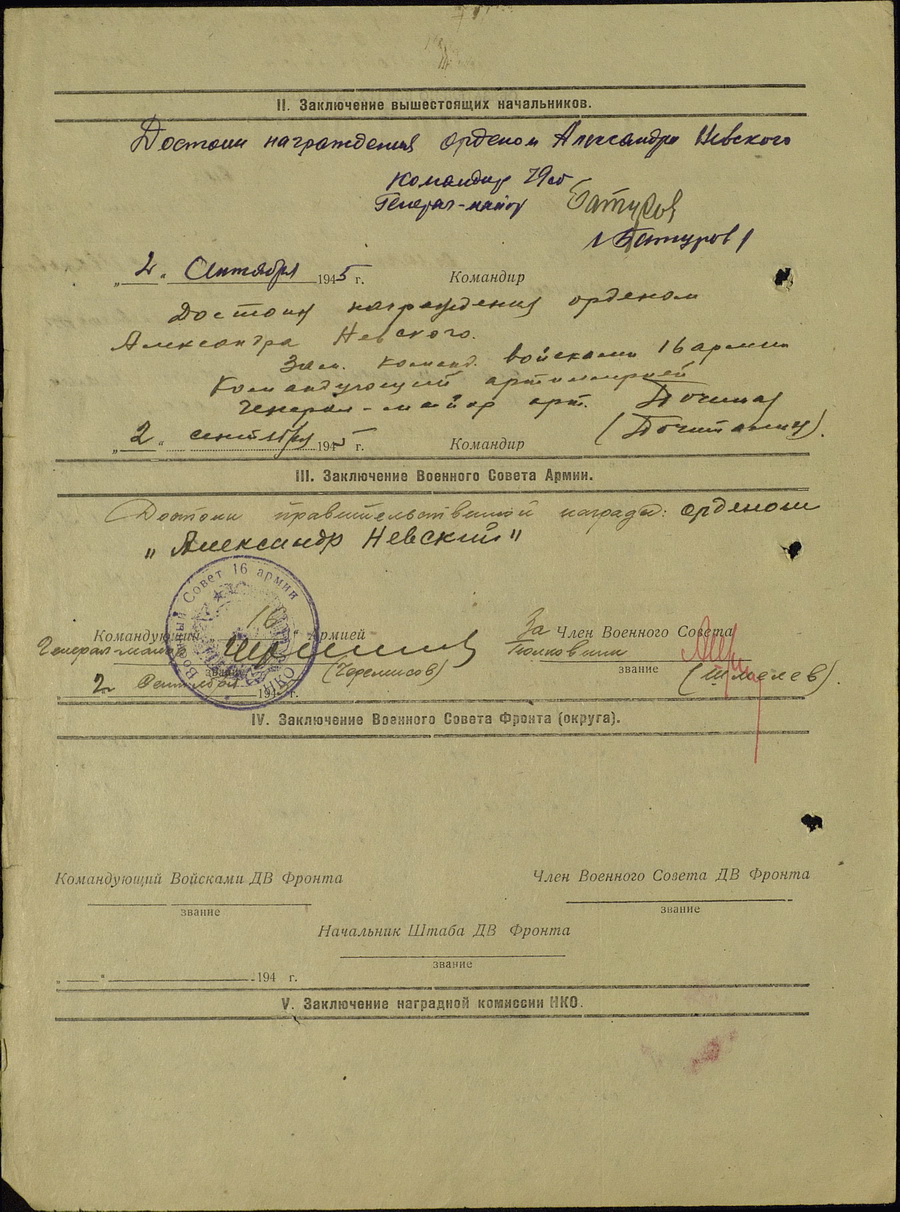 II. Заключение вышестоящих начальников.
Достоин награждения орденом Александра Невского
Командир 79 сд
Генерал-майор Батуров
/ Батуров /
„2" Сентября 1945 г. Командир
Достоин награждения орденом
Александра Невского.
Зам. команд. войсками 16 армии
Командующий артиллерией
Генерал-майор арт.
„2" сентября 1945 г. Командир
III. Заключение Военного Совета Армии.
Достоин правительственной награды: орденом
„Александр Невский"
Военный Совет 16 армии
НКО
Командующий 16 Армией За Член Военного Совета
Генерал-майор Полковник
звание звание
(Черемисов) (Шмелев).
2 Сентября 194 г.
IV. Заключение Военного Совета Фронта (округа).
Командующий Войсками ДВ Фронта Член Военного Совета ДВ Фронта
звание звание
Начальник Штаба ДВ Фронта
звание
„ " 194 г.
V. Заключение наградной комиссии НКО.